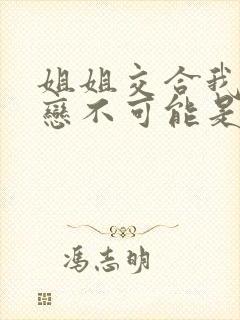 姐姐交合我
戀不可能是
冯志明